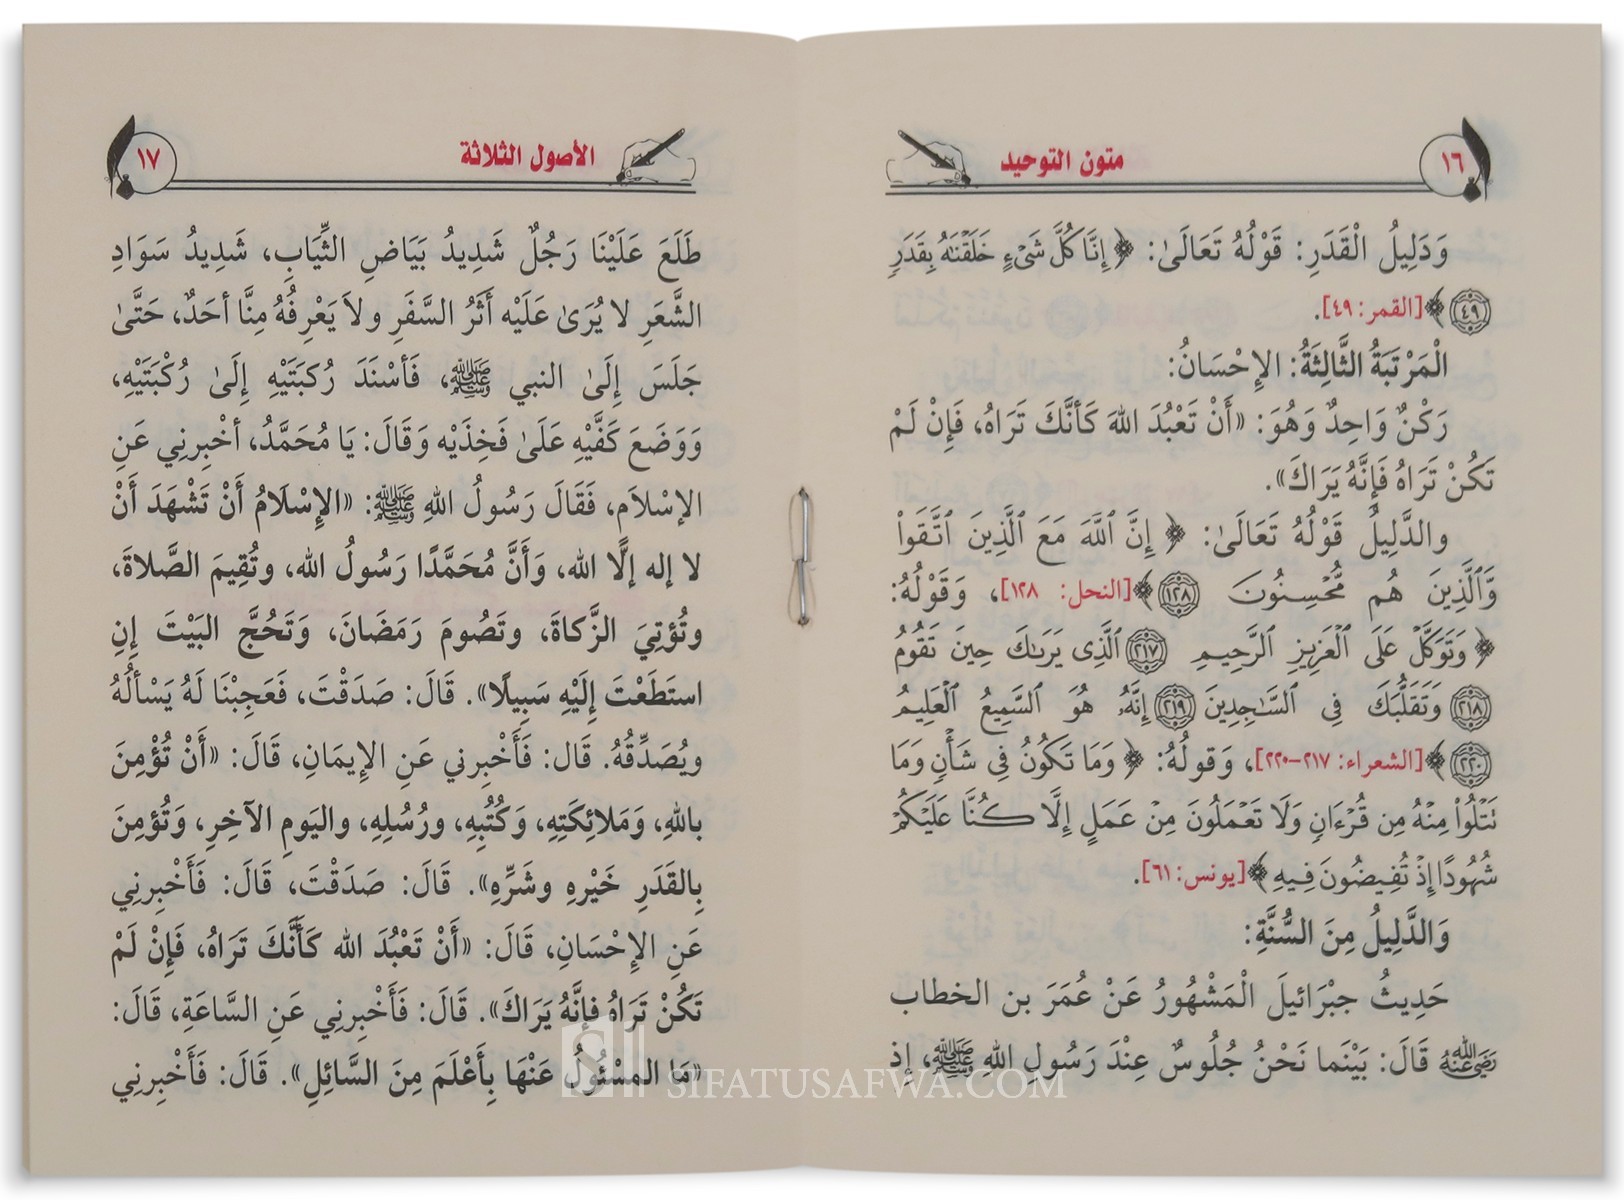 ١٦
متون التوحيد
وَدَلِيلُ الْقَدَرِ: قَوْلُهُ تَعَالَىٰ: ﴿إِنَّا كُلَّ شَيْءٍ خَلَقْنَٰهُ بِقَدَرٍ
﴿٤٩﴾ [القمر: ٤٩].
الْمَرْتَبَةُ الثَّالِثَةُ: الإِحْسَانُ:
رَكْنٌ وَاحِدٌ وَهُوَ: «أَنْ تَعْبُدَ اللهَ كَأنَّكَ تَرَاهُ، فَإِنْ لَمْ
تَكُنْ تَرَاهُ فَإِنَّهُ يَرَاكَ».
والدَّلِيلُ قَوْلُهُ تَعَالَىٰ: ﴿إِنَّ ٱللَّهَ مَعَ ٱلَّذِينَ ٱتَّقَواْ
وَّٱلَّذِينَ هُم مُّحْسِنُونَ ١٢٨﴾ [النحل: ١٢٨]، وَقَوْلُهُ:
﴿وَتَوَكَّلْ عَلَى ٱلْعَزِيزِ ٱلرَّحِيمِ ٢١٧ ٱلَّذِى يَرَىٰكَ حِينَ تَقُومُ
٢١٨ وَتَقَلُّبَكَ فِى ٱلسَّٰجِدِينَ ٢١٩ إِنَّهُۥ هُوَ ٱلسَّمِيعُ ٱلْعَلِيمُ
٢٢٠﴾ [الشعراء: ٢١٧-٢٢٠]، وَقولُهُ: ﴿وَمَا تَكُونُ فِى شَأْنٍ وَمَا
تَتْلُواْ مِنْهُ مِن قُرْءَانٍ وَلَا تَعْمَلُونَ مِنْ عَمَلٍ إِلَّا كُنَّا عَلَيْكُمْ
شُهُودًا إِذْ تُفِيضُونَ فِيهِ﴾ [يونس: ٦١].
وَالدَّلِيلُ مِنَ السُّنَّةِ:
حَدِيثُ جبْرَائيلَ الْمَشْهُورُ عَنْ عُمَرَ بن الخطاب
رَضِيَ اللَّهُ عَنْهُ قَالَ: بَيْنَما نَحْنُ جُلُوسٌ عِنْدَ رَسُولِ اللهِ ﷺ، إِذ
١٧
الأصول الثلاثة
طَلَعَ عَلَيْنَا رَجُلٌ شَدِيدُ بَيَاضِ الثِّيَابِ، شَدِيدُ سَوَادِ
الشَّعَرِ لا يُرَىٰ عَلَيْه أَثَرُ السَّفَرِ ولاَ يَعْرِفُهُ مِنَّا أحَدٌ، حَتَّىٰ
جَلَسَ إِلَىٰ النبي ﷺ، فَأسْنَدَ رُكبَتَيْهِ إِلَىٰ رُكْبَتَيْهِ،
وَوَضَعَ كَفَّيْهِ عَلَىٰ فَخِذَيْه وَقَالَ: يَا مُحَمَّدُ، أخْبِرنِي عَنِ
الإسْلاَمِ، فَقَالَ رَسُولُ اللهِ ﷺ: «الإِسْلَامُ أَنْ تَشْهَدَ أَنْ
لا إله إلَّا الله، وَأَنَّ مُحَمَّدًا رَسُولُ الله، وتُقِيمَ الصَّلاةَ،
وتُؤتِيَ الزَّكاةَ، وتَصُومَ رَمَضَانَ، وَتَحُجَّ البَيْتَ إِنِ
استَطَعْتَ إِلَيْهِ سَبِيلًا». قَالَ: صَدَقْتَ، فَعَجِبْنَا لَهُ يَسْألُهُ
ويُصَدِّقُهُ. قَال: فَأَخْبِرني عَنِ الإِيمَانِ، قَالَ: «أَنْ تُؤْمِنَ
باللهِ، وَمَلائِكَتِهِ، وَكُتُبِهِ، ورُسُلِهِ، واليَومِ الآخِرِ، وَتُؤمِنَ
بِالقَدَرِ خَيْرِهِ وشَرِّهِ». قَالَ: صَدَقْتَ، قَالَ: فَأَخْبِرنِي
عَنِ الإِحْسَانِ، قَالَ: «أَنْ تَعْبُدَ الله كَأَنَّكَ تَرَاهُ، فَإِنْ لَمْ
تَكُنْ تَرَاهُ فإنَّهُ يَرَاكَ». قَالَ: فَأَخْبِرنِي عَنِ السَّاعَةِ، قَالَ:
«مَا المسْئولُ عَنْهَا بِأَعْلَمَ مِنَ السَّائِلِ». قَالَ: فَأَخْبِرنِي
SIFATUSAFWA.COM